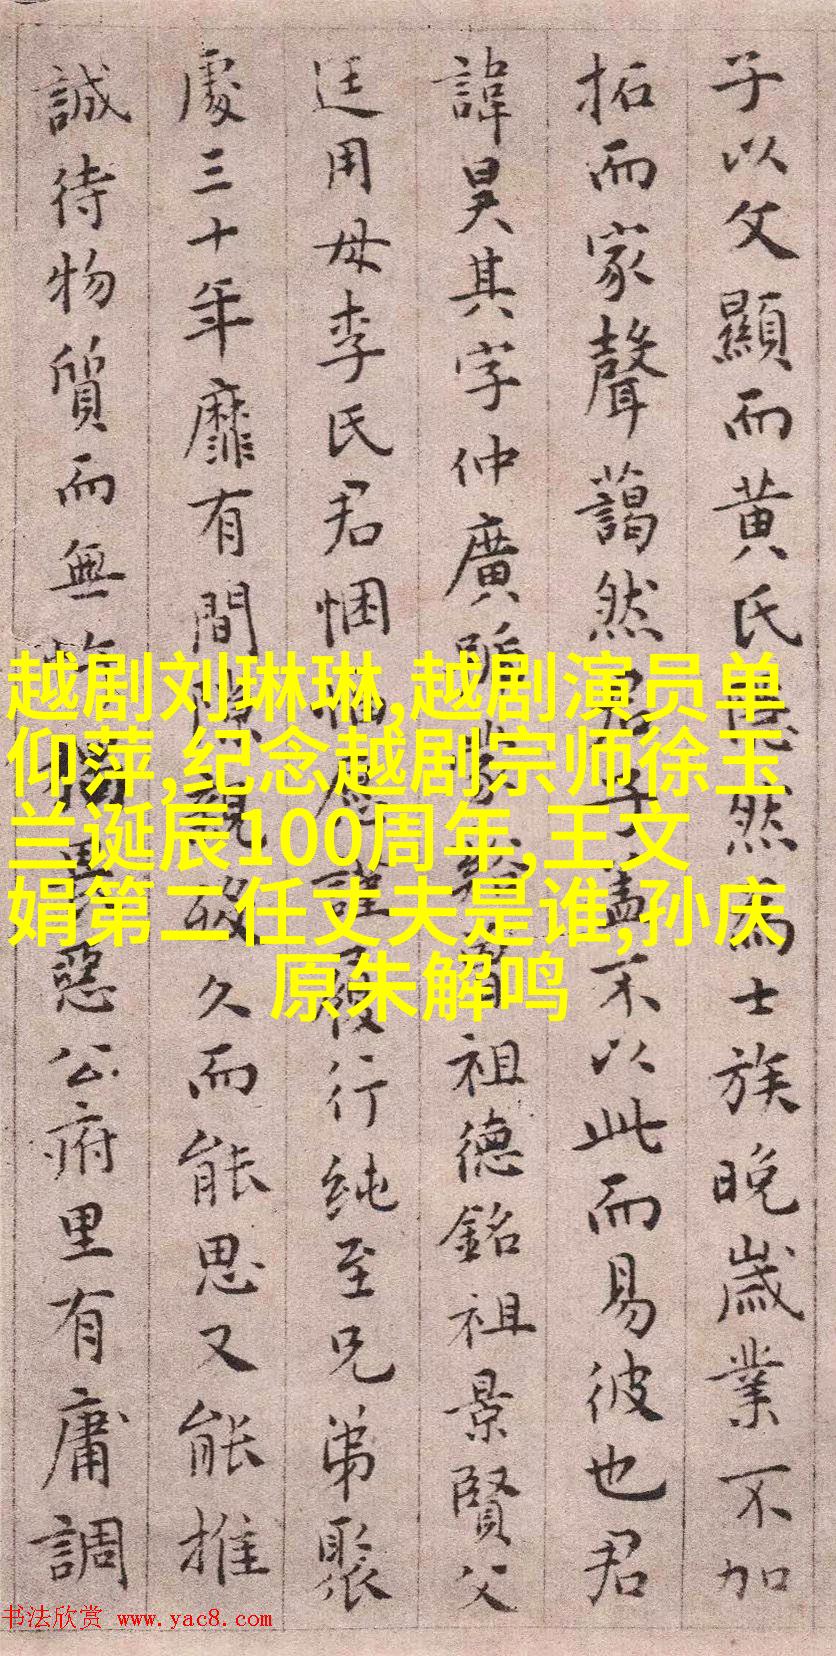 子以父顯而黄氏然為士族晚歲業不加
拓而家聲藹然君子盖不以此而易彼也君
諱昊其字仲廣祖德銘祖景賢父
廷用母李氏君悃謹履行純至兄弟聚
處三十年靡有間隙親故久而能思又能推
誠待物質而無惡公府里有庸調
越剧刘琳琳,越剧演员单
仰萍,纪念越剧宗师徐玉
兰诞辰100周年,王文
娟第二任丈夫是谁,孙庆
原朱解鸣
书法欣赏 www.yac8.com